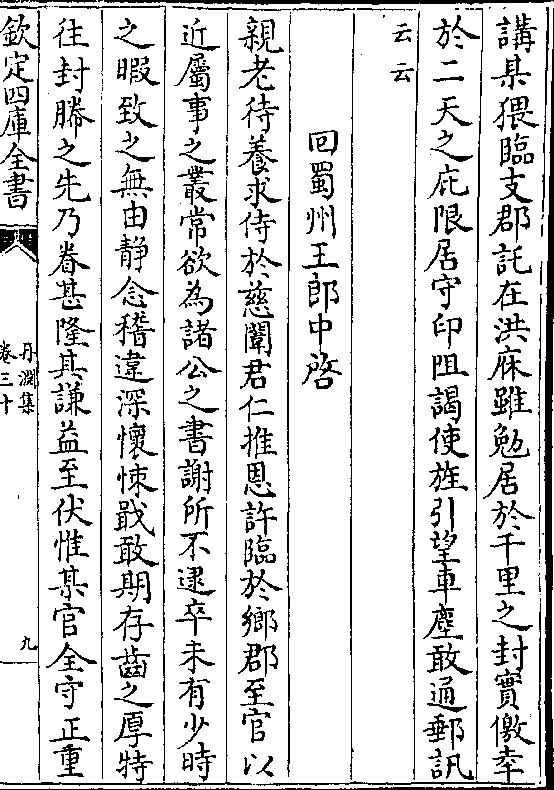 講杲猥臨支郡託在洪庥雖勉居於千里之封實儌幸
於二天之庇限居守印阻謁使旌引望車塵敢通郵訊
云云
回蜀州王郎中啓
親老待養求侍於慈闈君仁推恩許臨於鄉郡至官以
近屬事之叢常欲為諸公之書謝所不逮卒未有少時
之暇致之無由静念稽違深懷悚戢敢期存齒之厚特
往封牓之先乃眷甚隆其謙益至伏惟某官全守正重
欽定四庫全書
丹淵集
卷三十
九